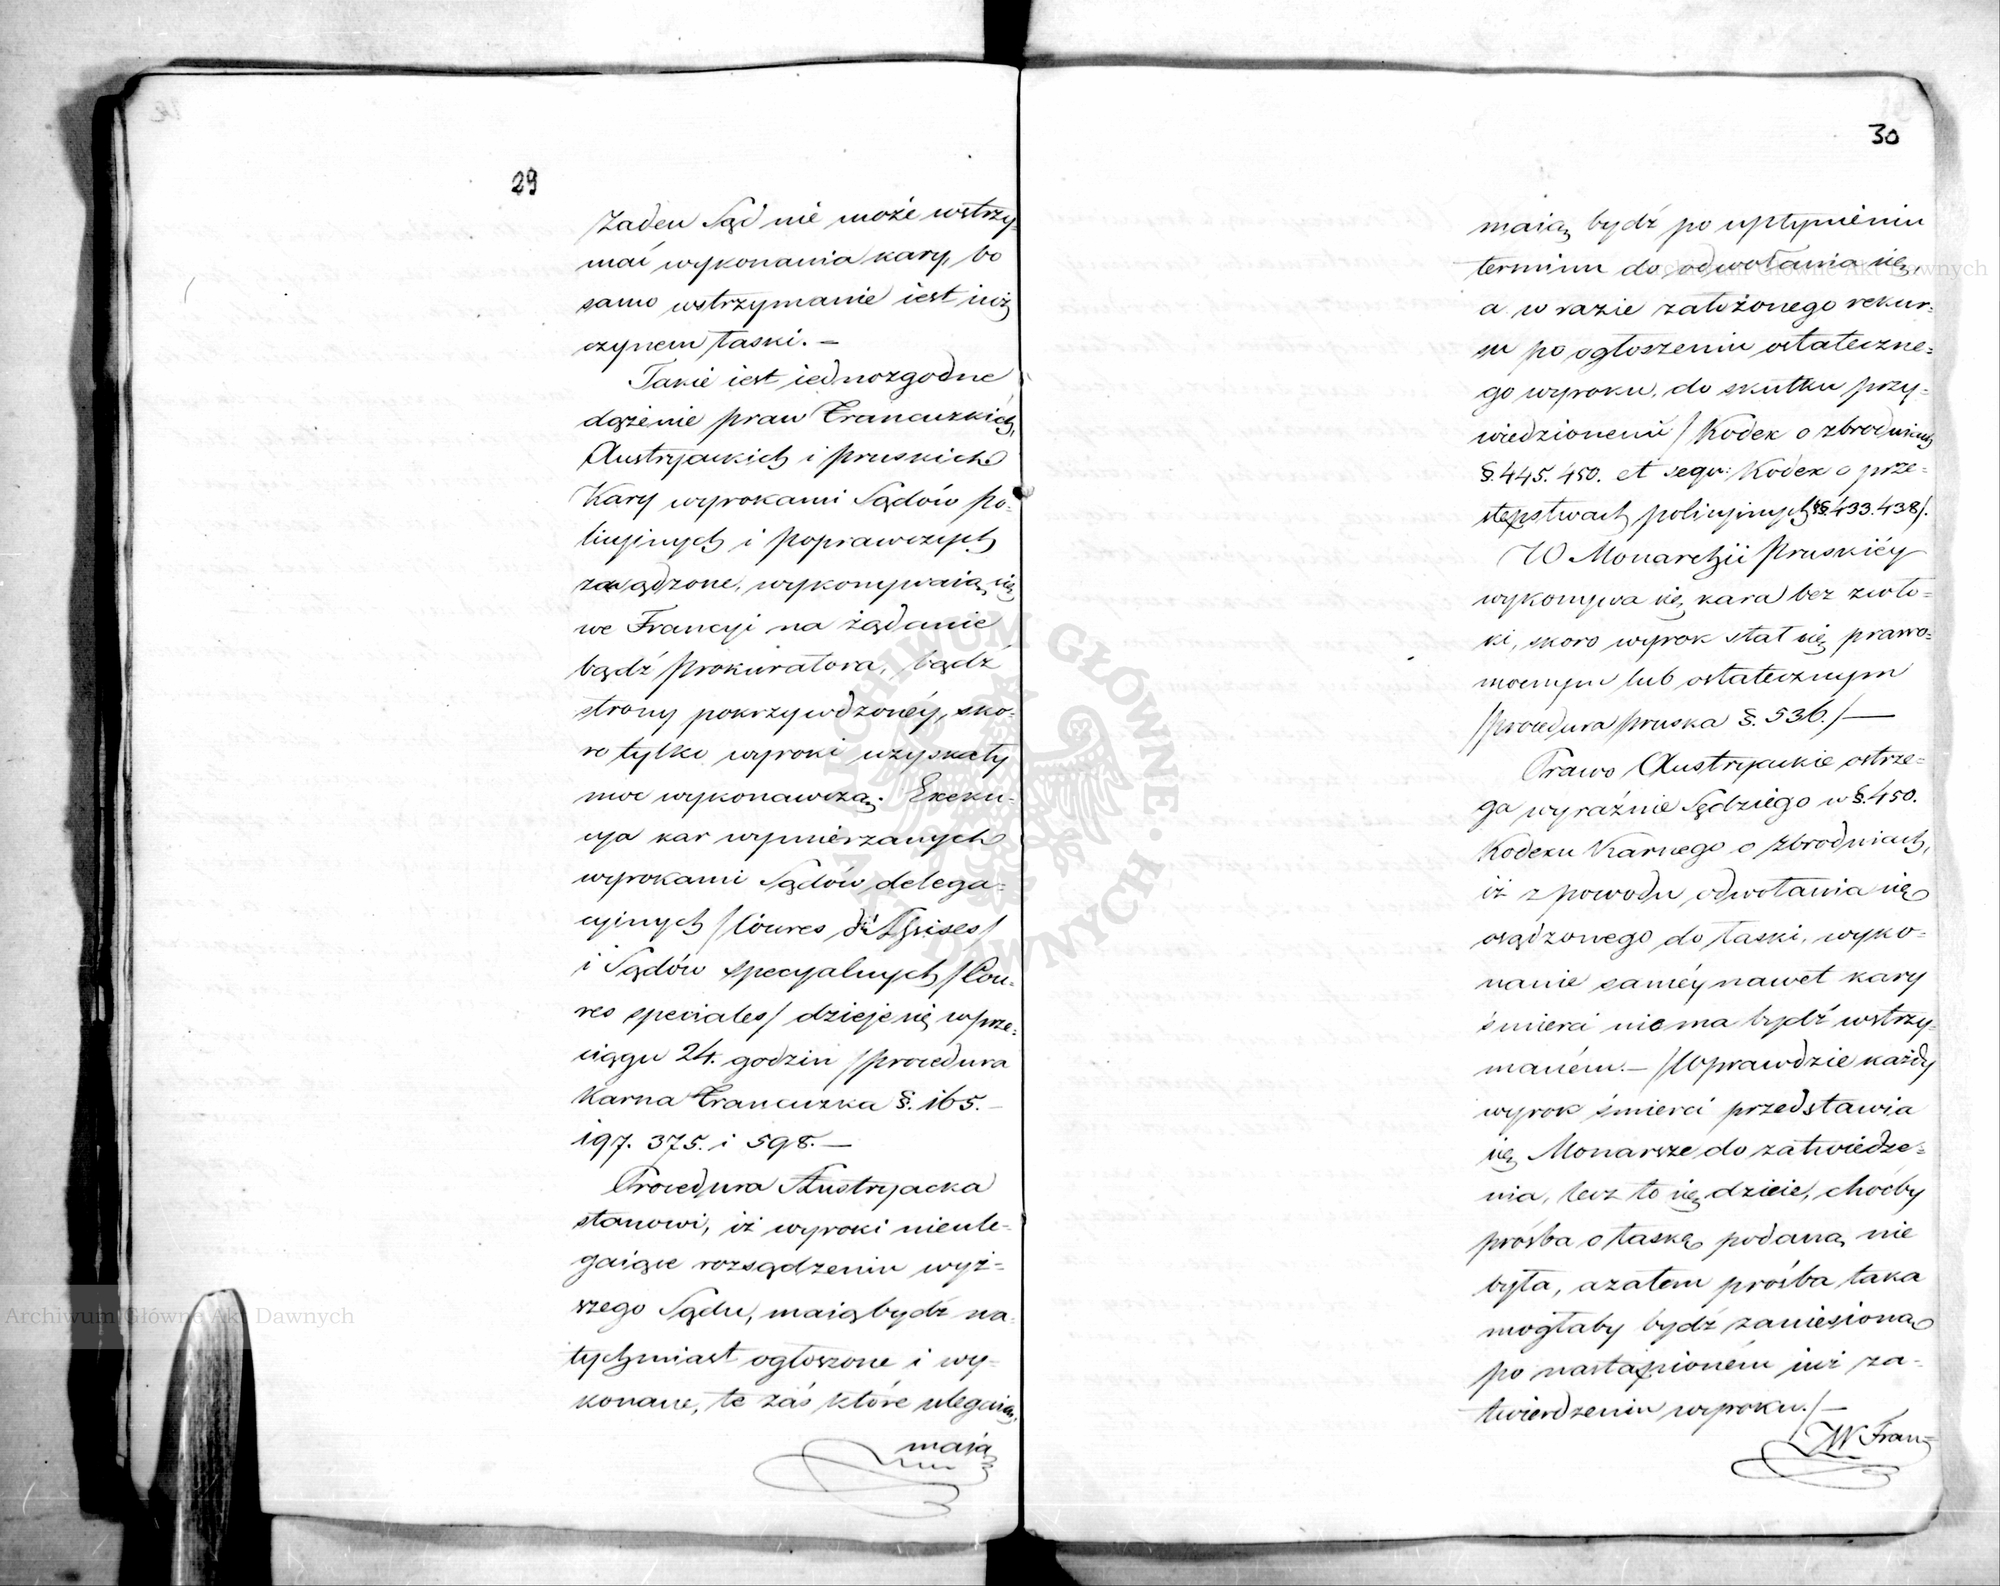 29
Żaden Sąd nie może wstrzy-
mać wykonania kary, bo
samo wstrzymanie iest iuż
czynem łaski. —
Takie iest iednozgodne
dążenie praw Francuzkich,
Austryackich i pruskich
Kary wyrokami Sądów po-
licyinych i poprawczych
zasądzone, wykonywaią się
we Francyi na żądanie
bądź prokuratora, bądź
strony pokrzywdzonéy, sko-
ro tylko wyroki uzyskały
moc wykonawczą. Exeku-
cya kar wymierzanych
wyrokami Sądów delega-
cyinych /Coures d'Assises/
i Sądów specyalnych /Cou-
res speciales/ dzieje się w prze-
ciągu 24. godzin /procedura
Karna Francuzka §. 165. —
197. 375. i 598. —
Procedura Austryacka
stanowi, iż wyroki nieule-
gaiące rozsądzeniu wyż-
szego Sądu, maią bydź na-
tychmiast ogłoszone i wy-
konane, te zaś które ulegaią,
maią
30
maią bydź po upłynieniu
terminu do odwołania się,
a w razie założonego rekur-
su po ogłoszeniu ostateczne-
go wyroku, do skutku przy-
wiedzionemi /Kodex o zbrodniach
§. 445. 450. et sequ: Kodex o prze-
stępstwach policyinych §§. 433. 438/.
W Monarchii Pruskiéy
wykonywa się kara bez zwło-
ki, skoro wyrok stał się prawo-
mocnym lub ostatecznym
/procedura pruska §. 536./ —
Prawo Austryackie ostrze-
ga wyraźnie Sędziego w §. 450.
Kodexu Karnego o zbrodniach,
iż z powodu odwołania się
osądzonego do łaski, wyko-
nanie saméy nawet kary
śmierci nie ma bydź wstrzy-
maném. — /Wprawdzie każdy
wyrok śmierci przedstawia
się Monarsze do zatwierdze-
nia, lecz to się dzieie, choćby
prośba o łaskę podaną nie
była, a zatem prośba taka
mogłaby bydź zaniesioną
po nastąpioném iuż za-
twierdzeniu wyroku./ —
W Fran-
Archiwum Główne Akt Dawnych
Archiwum Główne Akt Dawnych
ARCHIWUM GŁÓWNE AKT DAWNYCH